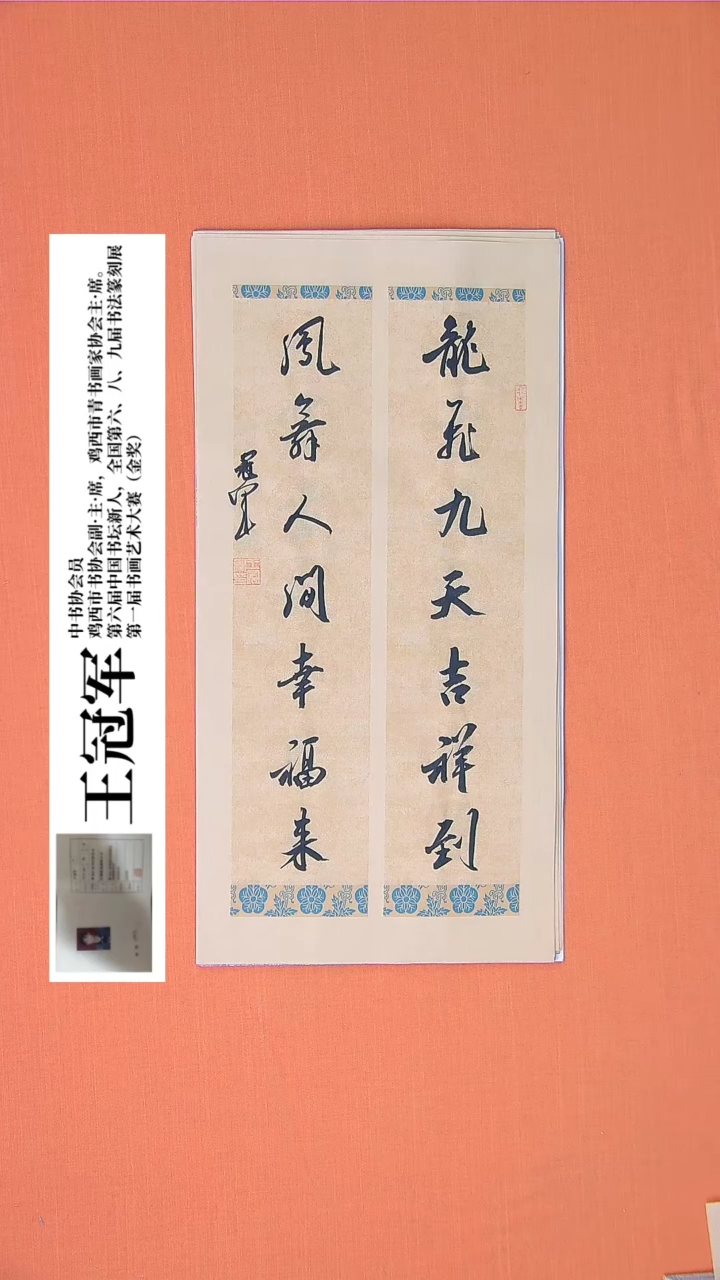 龍飛九天吉祥到
鳳舞人間幸福来
冠军
王冠军
中书协会员
鸡西市书协会副·主·席，鸡西市青书画家协会主·席。
第六届中国书坛新人，全国第六、八、九届书法篆刻展
第一届书画艺术大赛（金奖）